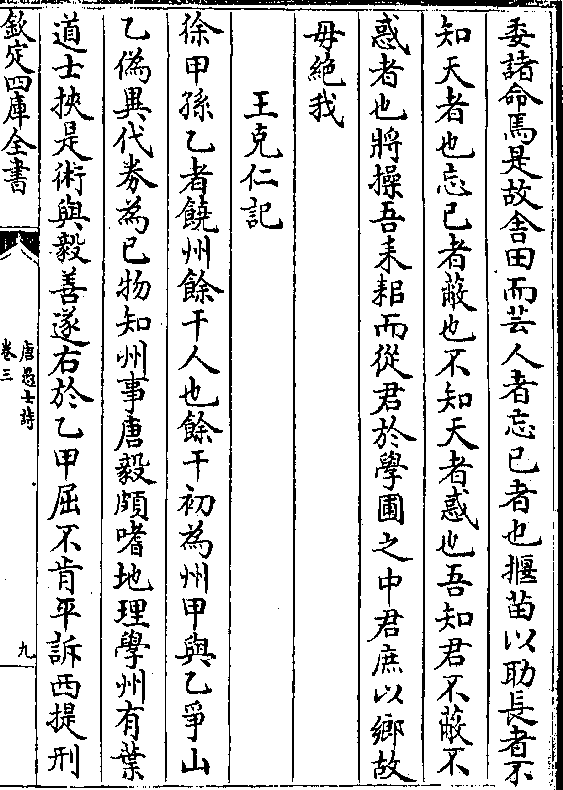 委諸命焉是故舎田而芸人者忘已者也揠苗以助長者不
知天者也忘已者蔽也不知天者惑也吾知君不蔽不
惑者也將操吾耒耜而從君於學圃之中君庶以鄉故
毋絶我
王克仁記
徐甲孫乙者饒州餘干人也餘干初為州甲與乙爭山
乙偽異代券為已物知州事唐毅頗嗜地理學州有葉
道士挾是術與毅善遂右於乙甲屈不肯平訴西提刑
欽定四庫全書
唐愚士詩
卷三
九